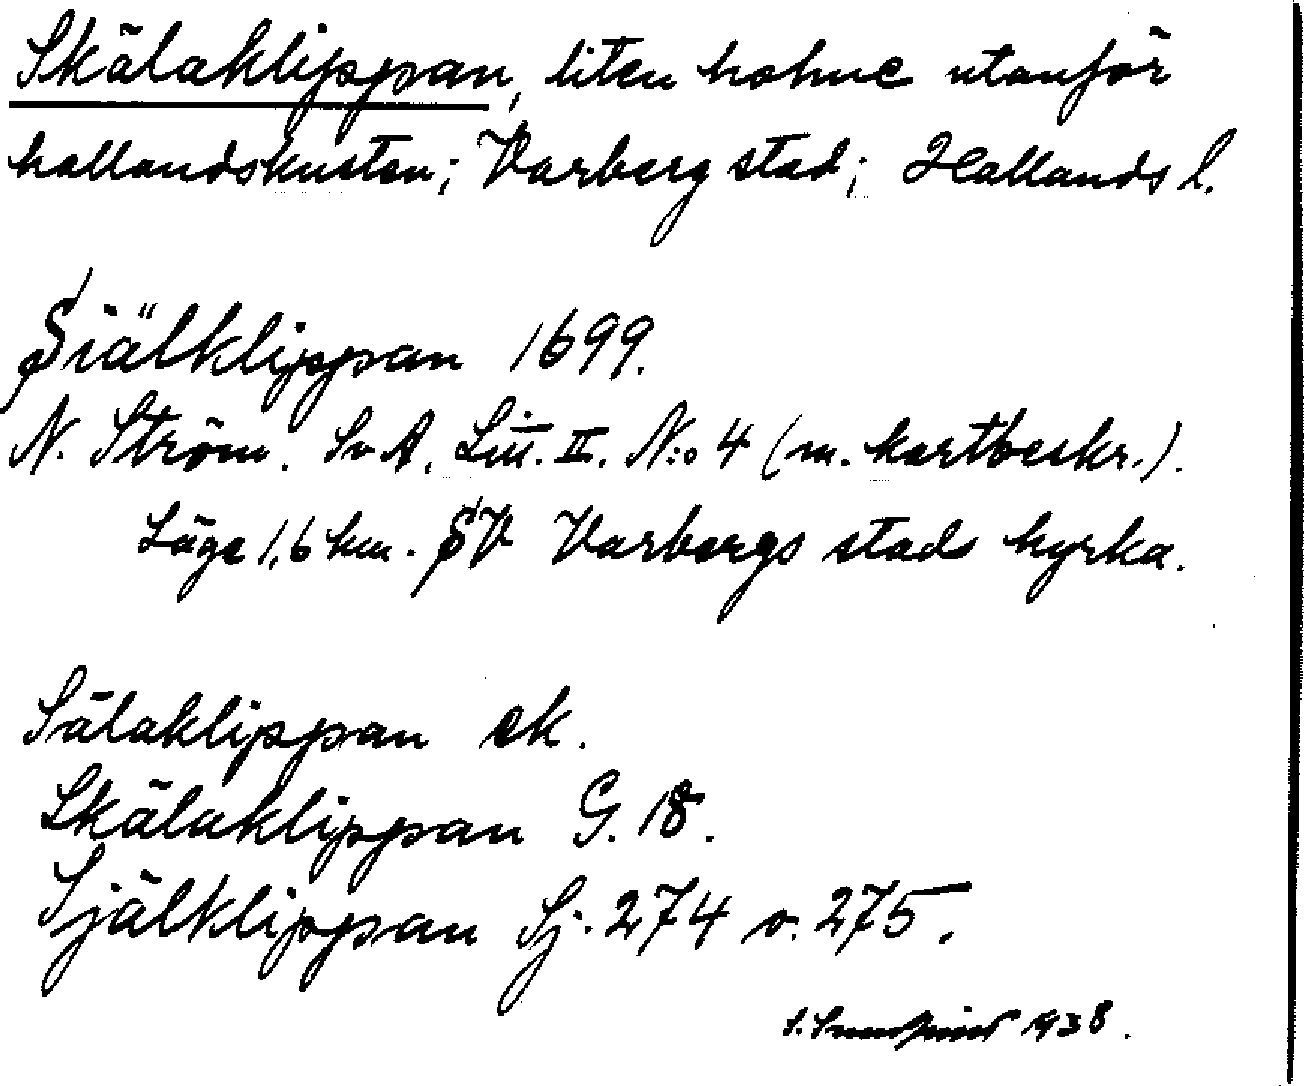 Skälaklippan, liten holme utanför
hallandskusten; Varberg stad; Hallands l.
Siälklippan 1699.
N. Ström. Sv A. Litt. II. N:o 4 (m. kartbeskr.).
Läge 1,6 km. SV Varbergs stads kyrka.
Sälaklippan ek.
Skälaklippan G. 18.
Själklippan Sj. 274 o. 275.
1938.